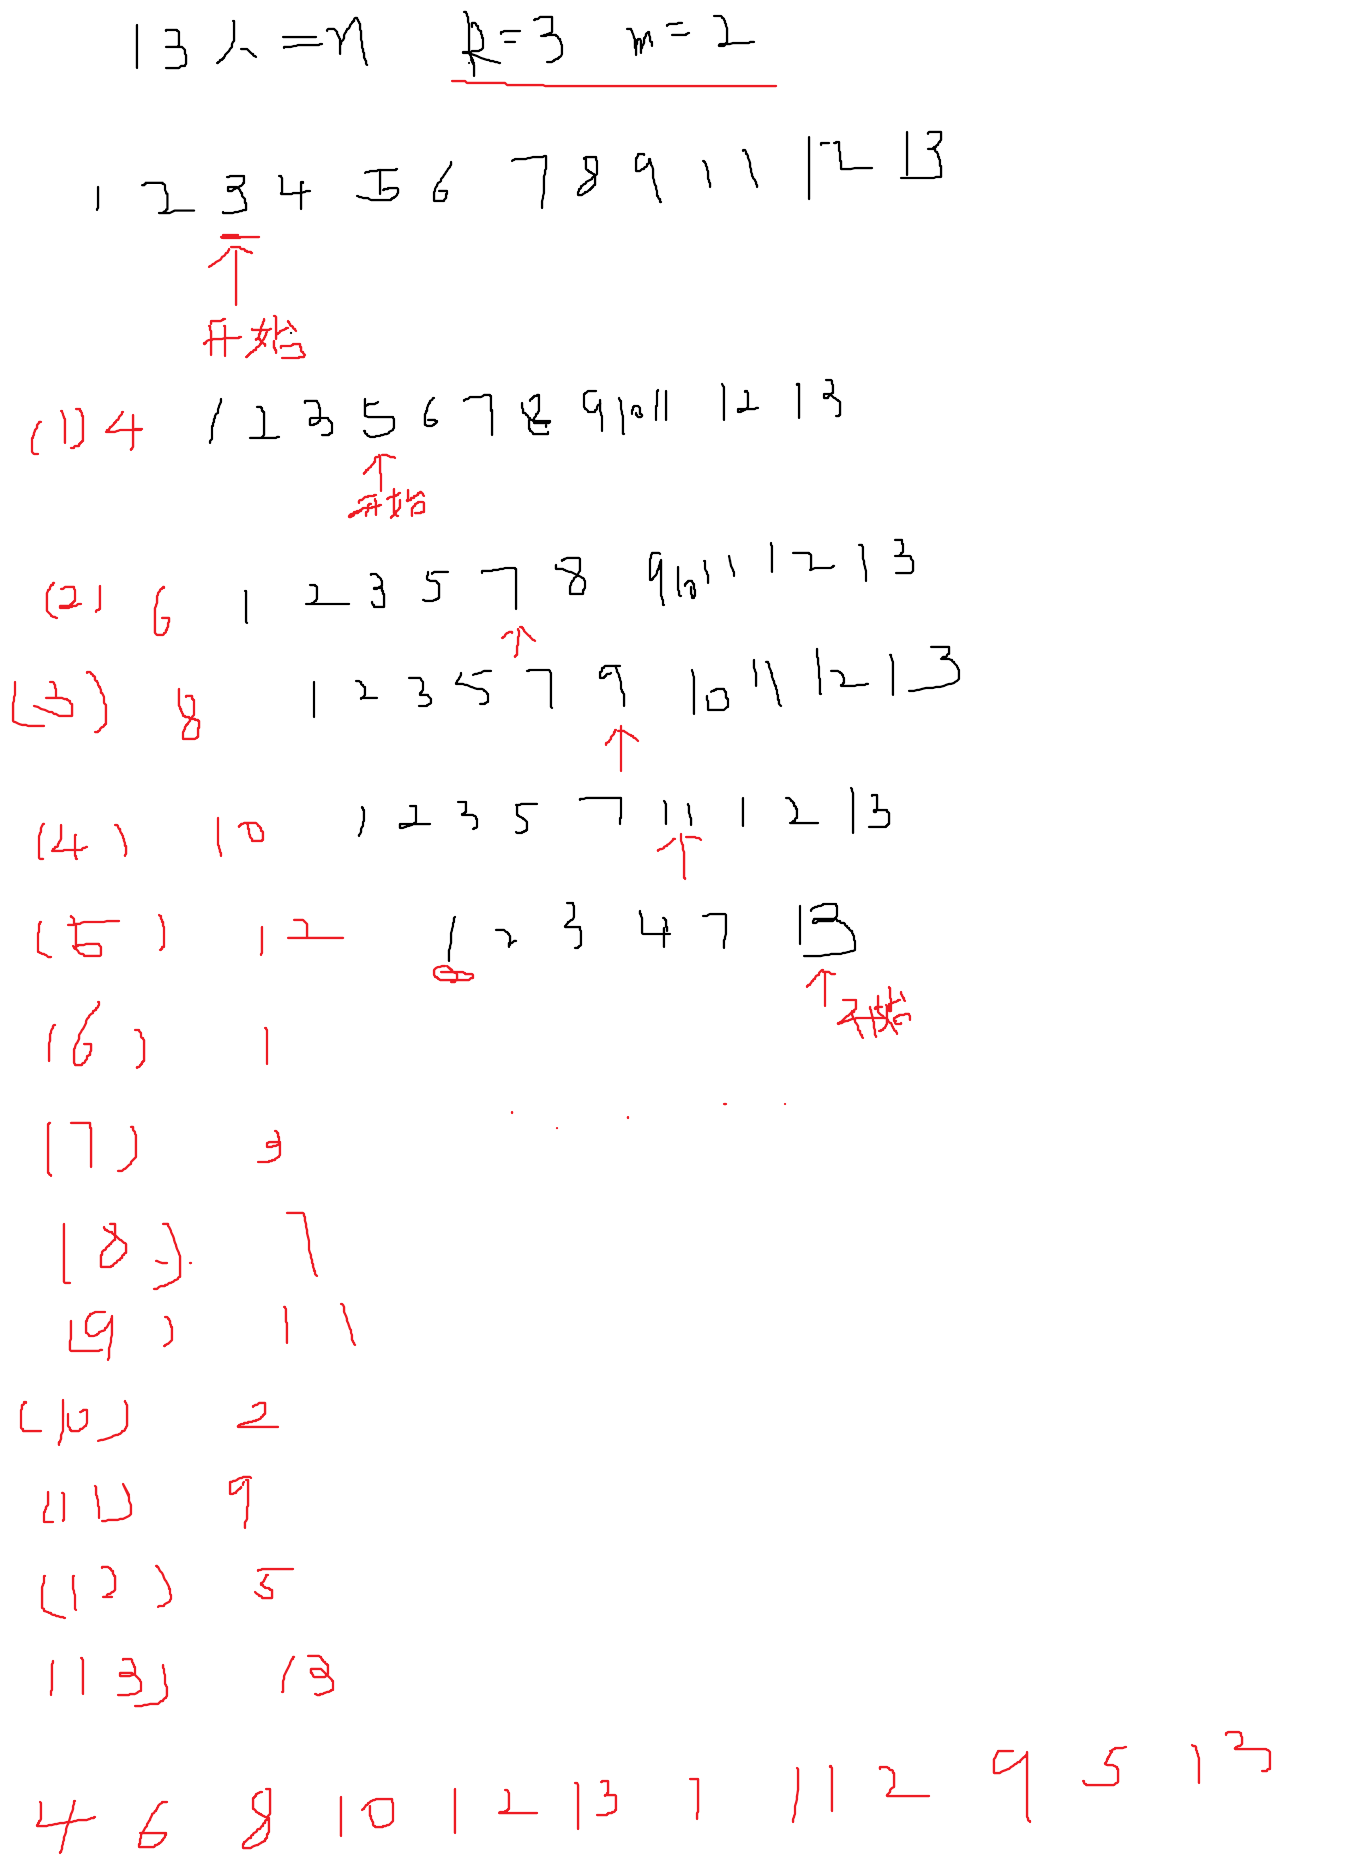 13人=n k=3 m=2
1 2 3 4 5 6 7 8 9 11 12 13
开始
(1) 4 1 2 3 5 6 7 8 9 10 11 12 13
开始
(2) 6 1 2 3 5 7 8 9 10 11 12 13
(3) 8 1 2 3 5 7 9 10 11 12 13
(4) 10 1 2 3 5 7 11 12 13
(5) 12 1 2 3 4 7 13
开始
(6) 1
(7) 3
(8) 7
(9) 11
(10) 2
(11) 9
(12) 5
(13) 13
4 6 8 10 12 13 7 11 2 9 5 13